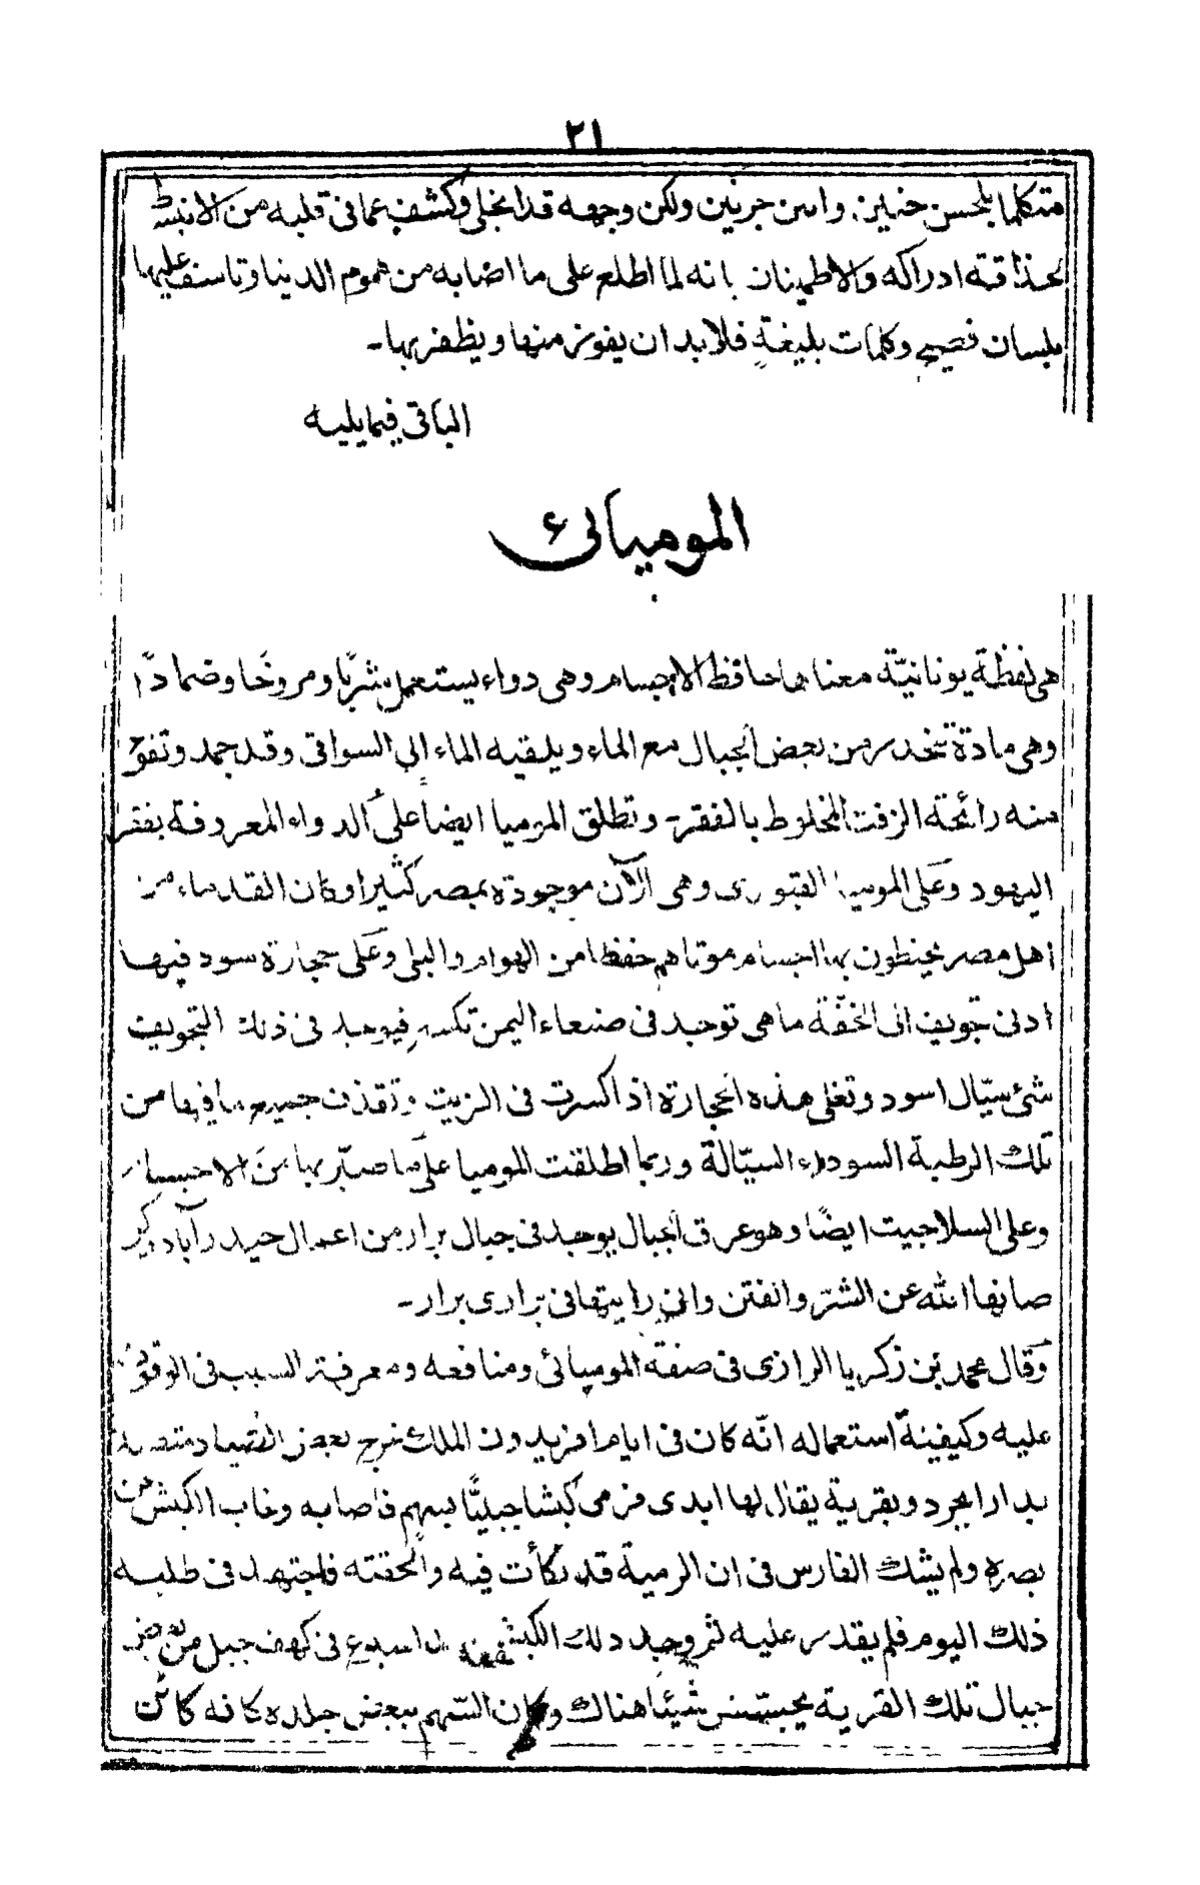 ٢١
متكلما بلحسن حنين وانين حزين ولكن وجهه قد انجلى وكشف عما في قلبه من الانبساط
بحذاقته ادراكه والاطمينان بانه لما اطلع على ما اصابه من هموم الدنيا وتاسف عليها
بلسان فصيح وكلمات بليغة فلا بد ان يفوز منها ويظفر بها-
الباقى فيما يليه
الموميائى
هى لفظة يونانيّة معناها حافظ الاجسام وهى دواء يستعمل شربًا ومروخًا وضمادًا
وهى مادة تنحدر من بعض الجبال مع الماء ويلقيه الماء الى السواقى وقد جمد وتفوح
منه رائحة الزفت المخلوط بالقفر- وتطلق الموميا ايضا على الدواء المعروفة بقفر
اليهود وعلى الموميا القبورى وهى الآن موجودة بمصر كثيرا وكان القدماء من
اهل مصر يحنطون بها اجسام موتاهم حفظا من الهوام والبلى وعلى حجارة سود فيها
ادنى تجويف الى الخفّة ما هى توجد فى صنعاء اليمن تكسر فيوجد فى ذلك التجويف
شئ سيّال اسود وتغلى هذه الحجارة اذا كسرت فى الزيت وتقذف جميع ما فيها من
تلك الرطبة السوداء السيّالة وربما اطلقت الموميا على ما صبّر بها من الاجسام
وعلى السلاجيت ايضًا وهو عرق الجبال يوجد فى جبال برار من اعمال حيدرآباد دكن
صانها الله عن الشر والفتن وانى رايتها فى برارى برار-
وقال محمد بن زكريا الرازى فى صفة الموميائى ومنافعه ومعرفة السبب فى الوقوف
عليه وكيفية استعماله انّه كان فى ايام افريدون الملك خرج بعض القصاد متصيدا
بدارابجرد وبقرية يقال لها ابدى فرمى كبشا جبليًّا بسهم فاصابه وغاب الكبش من
بصره ولم يشك الفارس فى ان الرمية قد نكأت فيه والحقته فاجتهد فى طلبه
ذلك اليوم فلم يقدر عليه ثم وجد ذلك الكبش اسبوع فى كهف جبل من بعض
جبال تلك القرية يحبس شيئا هناك وكان السّهم ببعض جلده كانه كائن